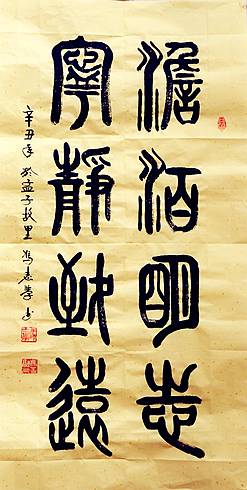 澹泊明志
寧靜致遠
辛丑年於孟子故里馮春學書